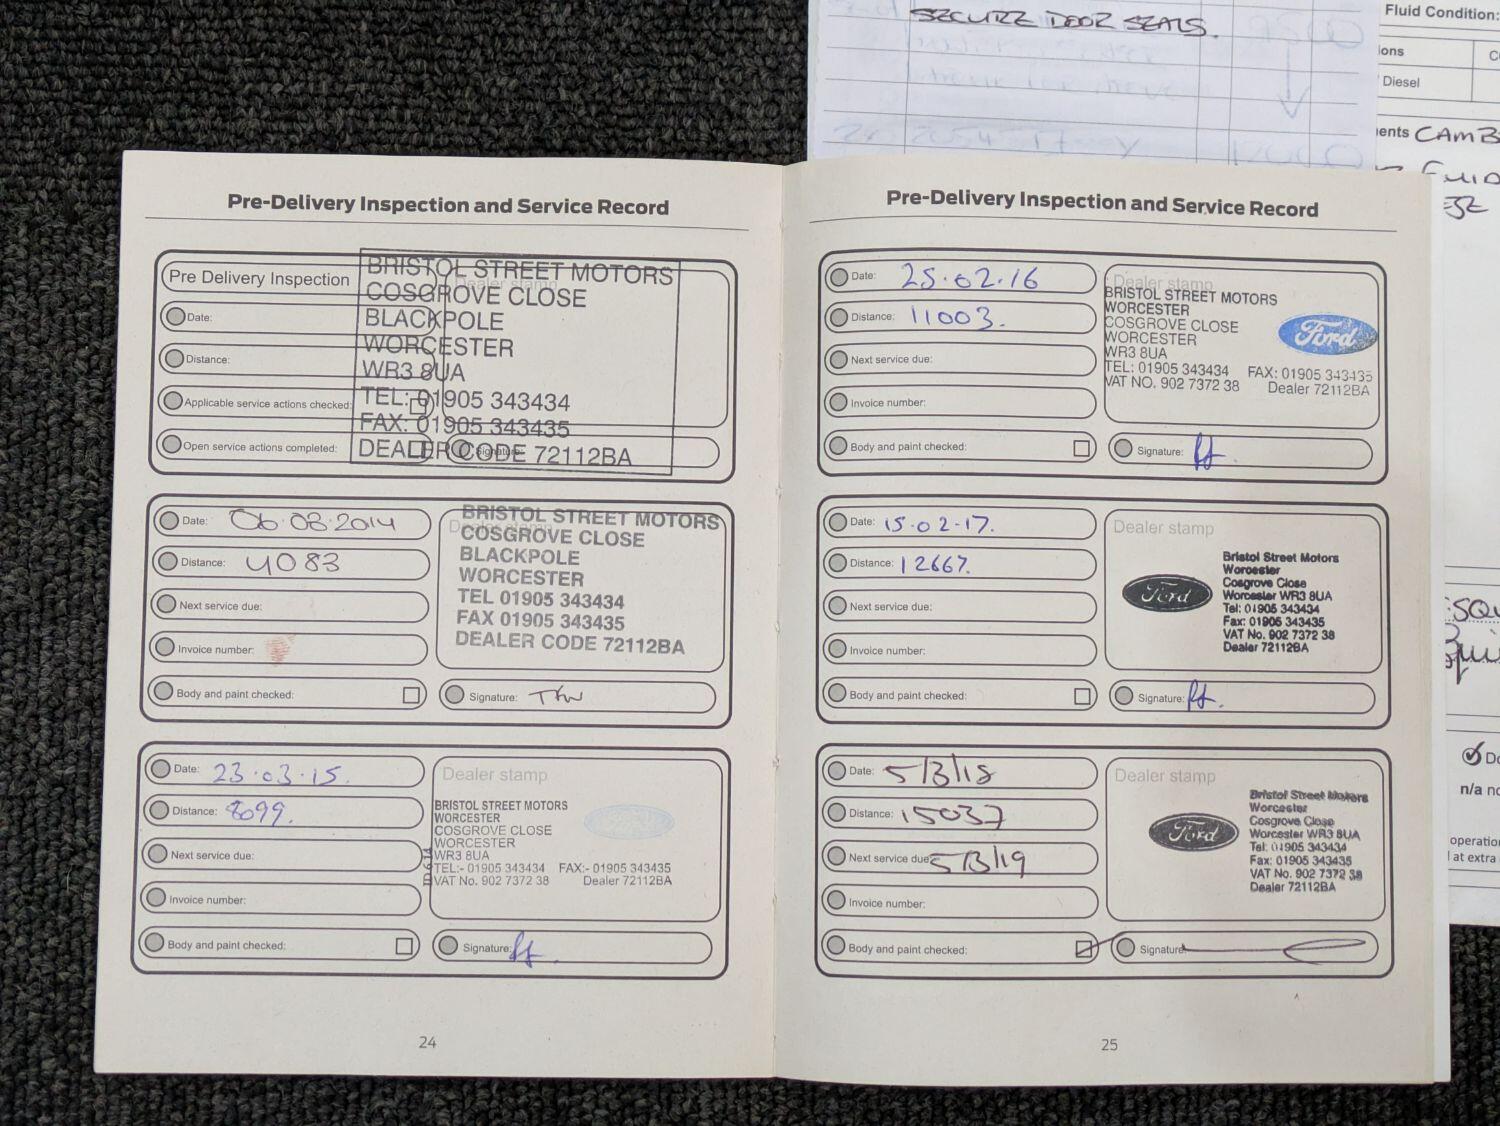 SECURE DOOR SEALS.
Fluid Condition:
ions
Diesel
ents CAMB
Pre-Delivery Inspection and Service Record
Pre Delivery Inspection
Date:
Distance:
Applicable service actions checked:
Open service actions completed:
Dealer stamp
BRISTOL STREET MOTORS
COSGROVE CLOSE
BLACKPOLE
WORCESTER
WR3 8UA
TEL: 01905 343434
FAX: 01905 343435
DEALER CODE 72112BA
Signature:
Date: 06.08.2014
Distance: 4083
Next service due:
Invoice number:
Body and paint checked:
Dealer stamp
BRISTOL STREET MOTORS
COSGROVE CLOSE
BLACKPOLE
WORCESTER
TEL 01905 343434
FAX 01905 343435
DEALER CODE 72112BA
Signature:
Date: 23.03.15.
Distance: 8099.
Next service due:
Invoice number:
Body and paint checked:
Dealer stamp
BRISTOL STREET MOTORS
WORCESTER
COSGROVE CLOSE
WORCESTER
WR3 8UA
TEL:- 01905 343434 FAX:- 01905 343435
VAT No. 902 7372 38 Dealer 72112BA
Ford
Signature:
24
Pre-Delivery Inspection and Service Record
Date: 25.02.16
Distance: 11003.
Next service due:
Invoice number:
Body and paint checked:
Dealer stamp
BRISTOL STREET MOTORS
WORCESTER
COSGROVE CLOSE
WORCESTER
WR3 8UA
TEL: 01905 343434 FAX: 01905 343435
VAT NO. 902 7372 38 Dealer 72112BA
Ford
Signature:
Date: 15.02.17.
Distance: 12667.
Next service due:
Invoice number:
Body and paint checked:
Dealer stamp
Ford
Bristol Street Motors
Worcester
Cosgrove Close
Worcester WR3 8UA
Tel: 01905 343434
Fax: 01905 343435
VAT No. 902 7372 38
Dealer 72112BA
Signature:
Date: 5/3/18
Distance: 15037
Next service due: 5/3/19
Invoice number:
Body and paint checked:
Dealer stamp
Ford
Bristol Street Motors
Worcester
Cosgrove Close
Worcester WR3 8UA
Tel: 01905 343434
Fax: 01905 343435
VAT No. 902 7372 38
Dealer 72112BA
Signature:
25
n/a
operatio
at extra